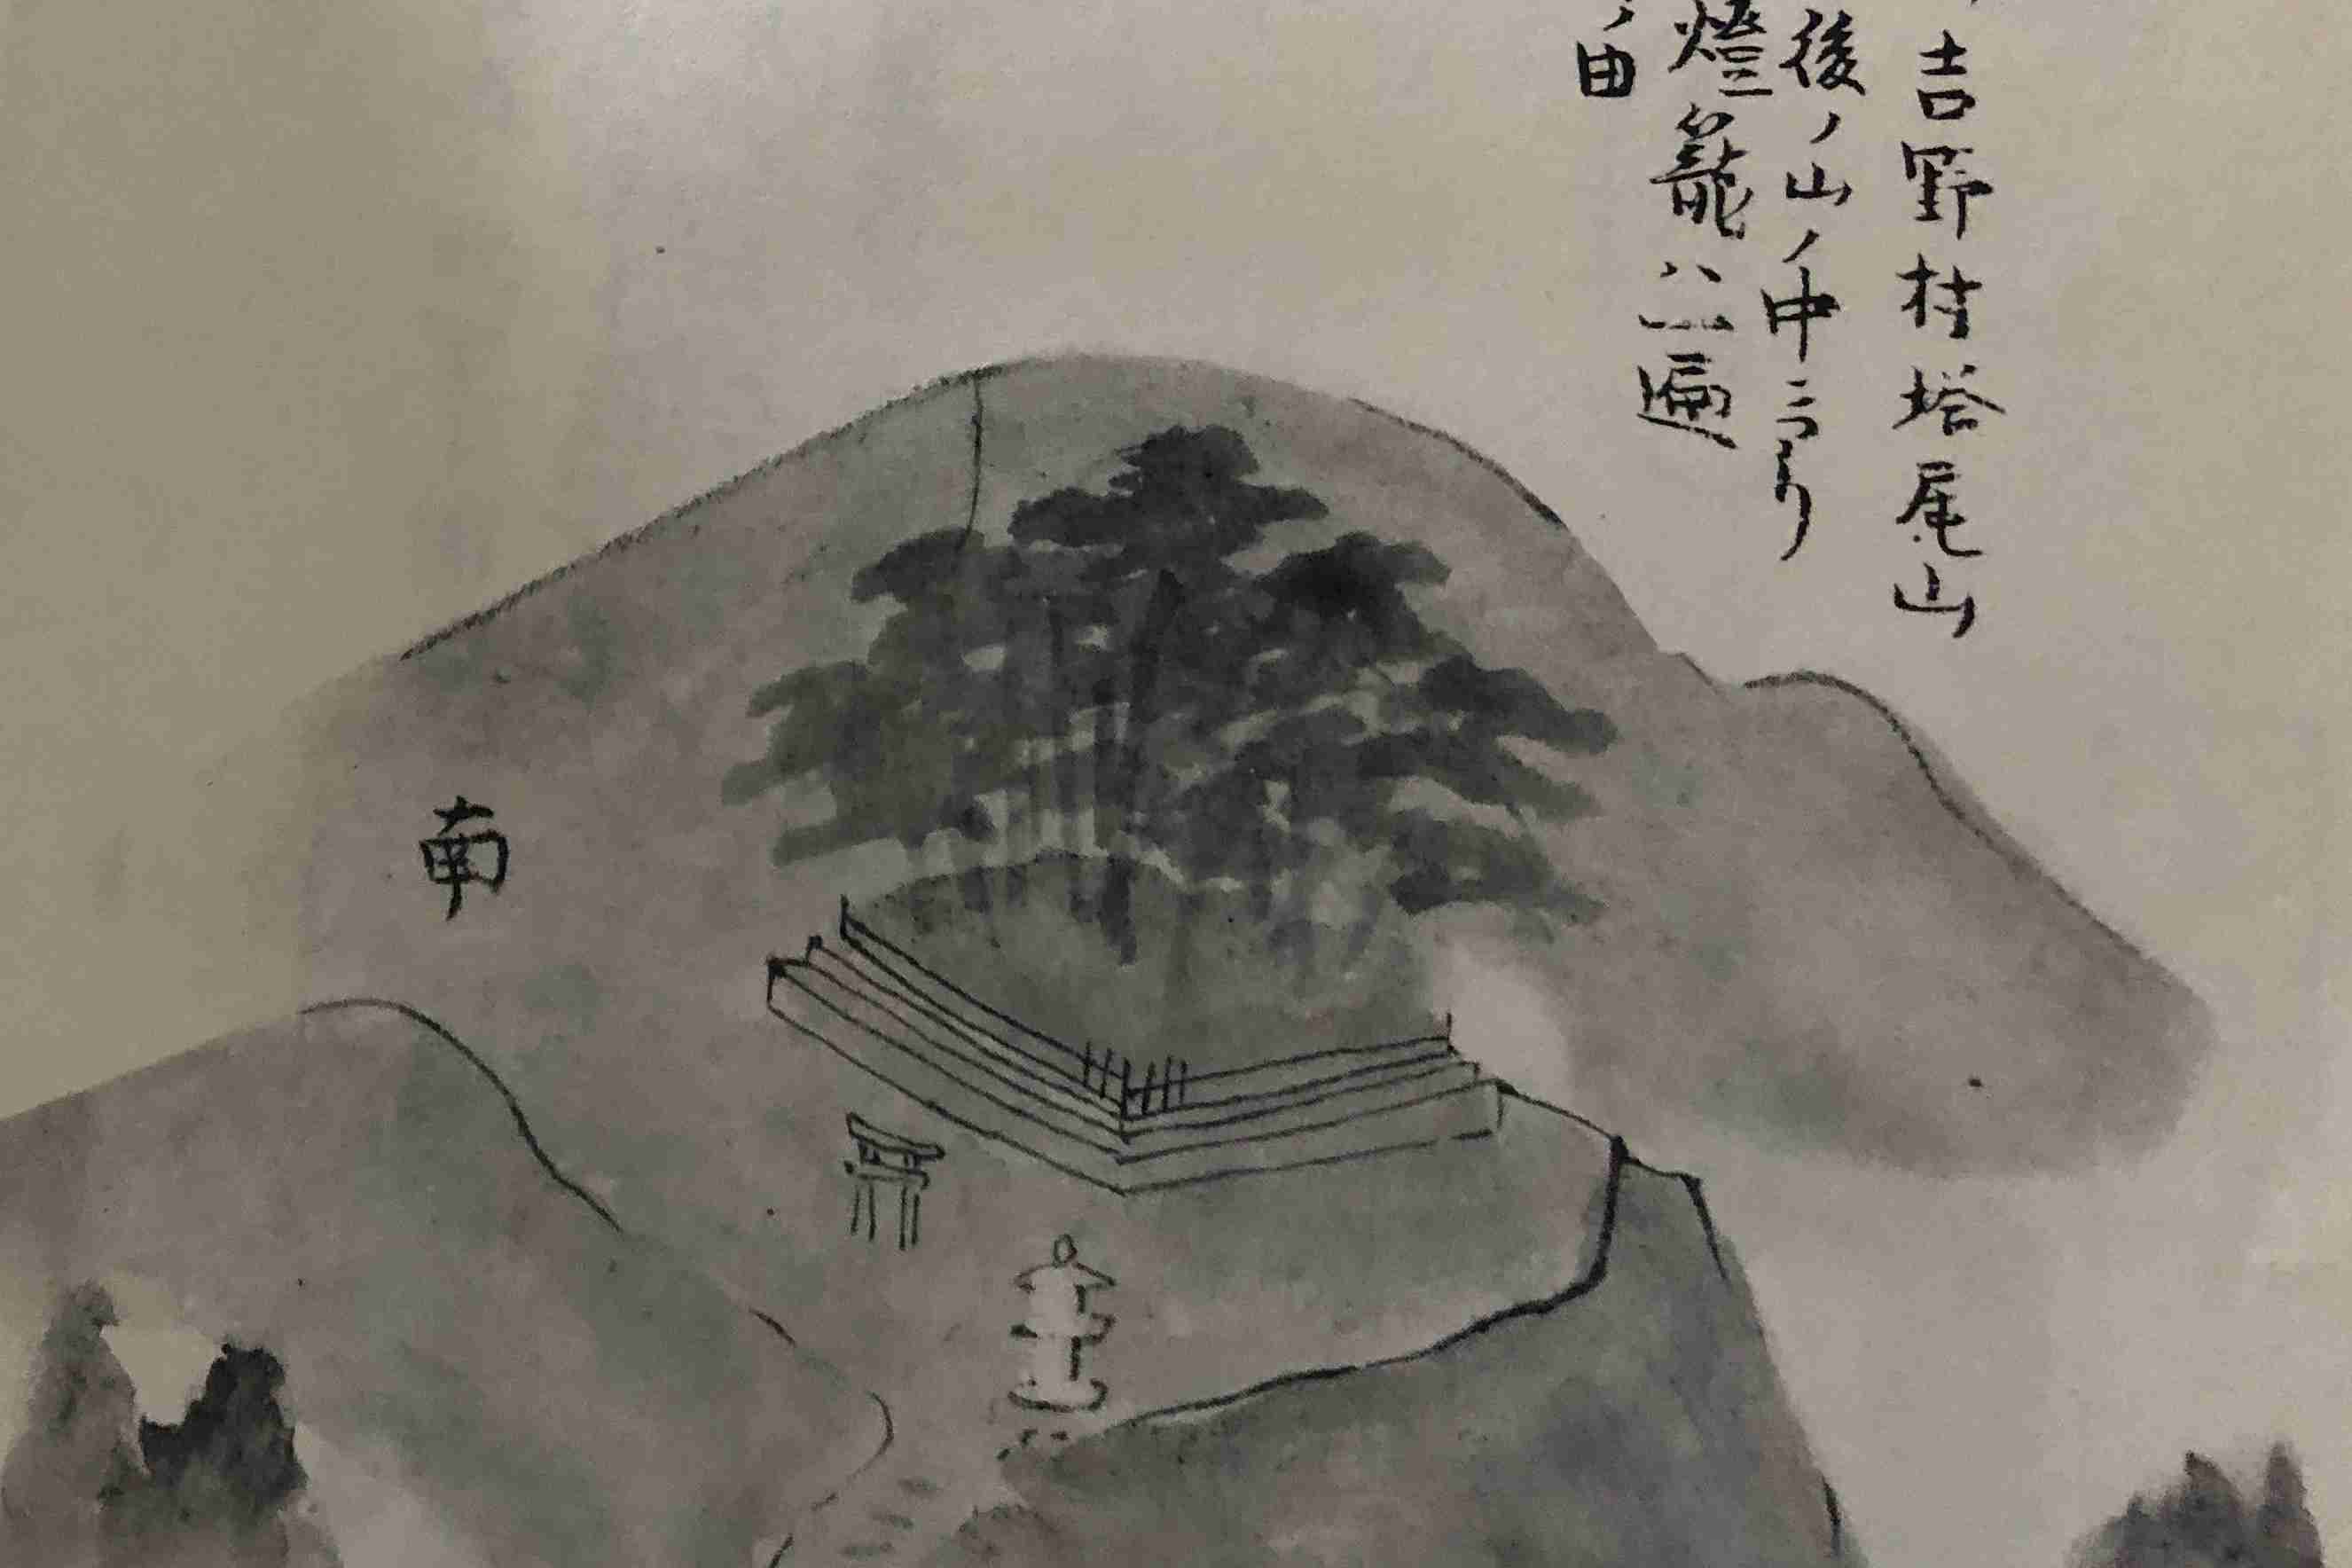 吉野村塔尾山
後ノ山ノ中ニアリ
燈籠ハ一遍
ノ由
南